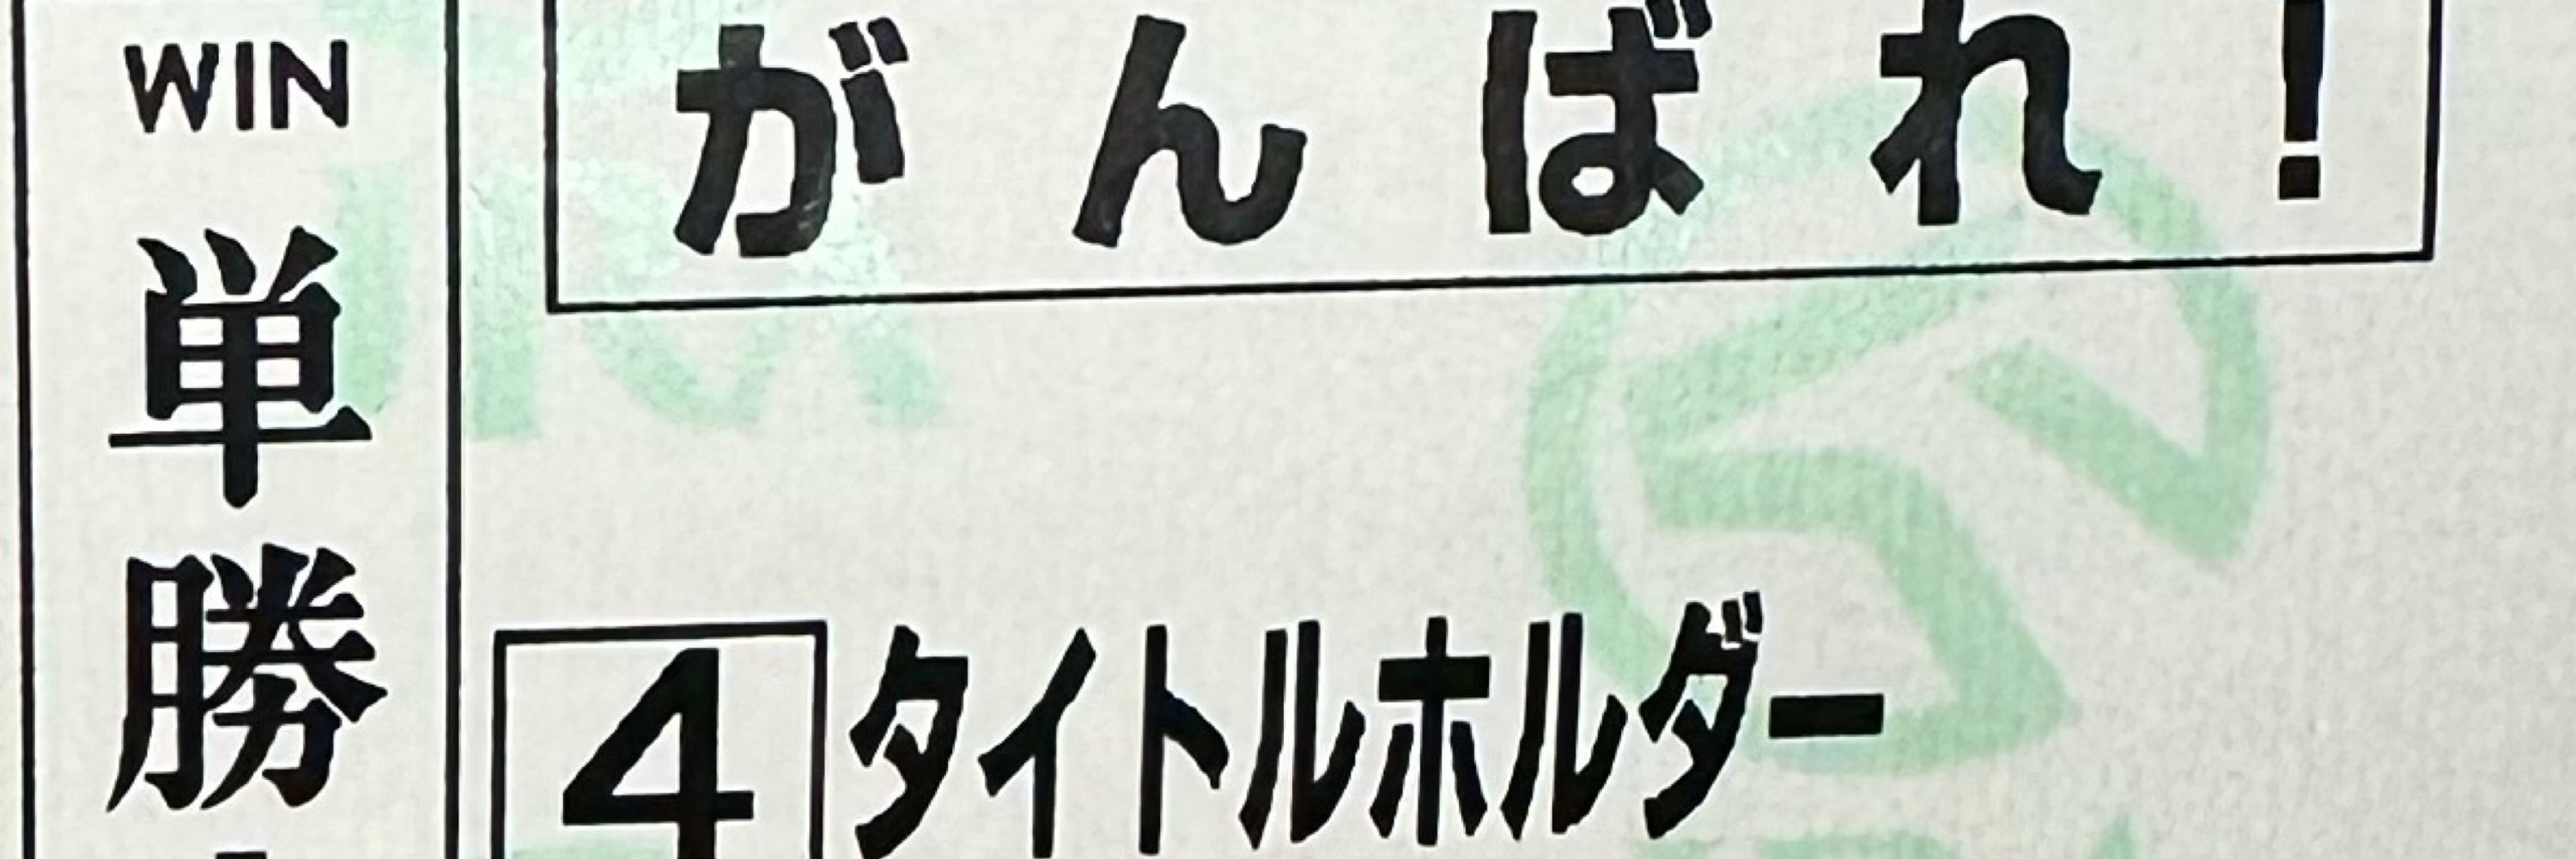 WIN
単勝
がんばれ!
4 タイトルホルダー